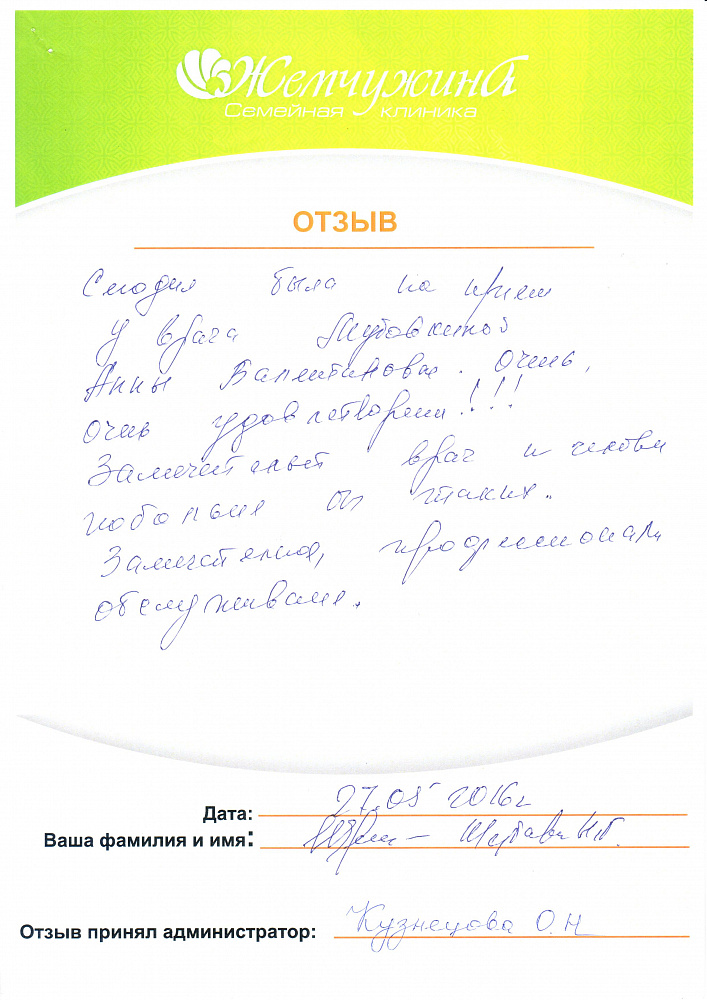 Жемчужина
Семейная клиника
ОТЗЫВ
Сегодня была на прием
у врача
Анны Валентиновны. Очень,
очень удовлетворена!!!
Замечательный врач и человек
побольше бы таких.
Замечательное, профессионально
обслуживание.
Дата: 27.05 2016г
Ваша фамилия и имя:
Отзыв принял администратор: Кузнецова О.Н